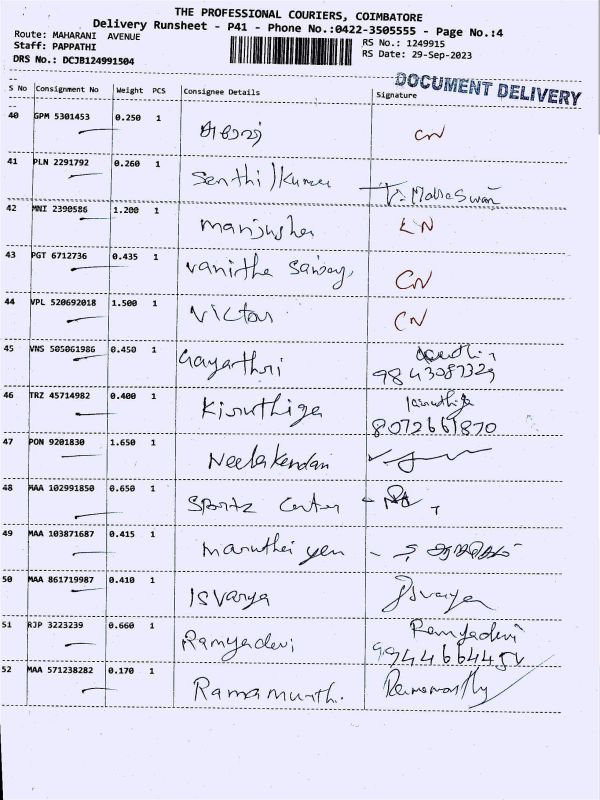 THE PROFESSIONAL COURIERS, COIMBATORE
Delivery Runsheet - P41 - Phone No.:0422-3505555 - Page No.:4
Route: MAHARANI AVENUE
RS No.: 1249915
Staff: PAPPATHI
RS Date: 29-Sep-2023
DRS No.: DCJB124991504
DOCUMENT DELIVERY
S No Consignment No Weight PCS Consignee Details Signature
40 GPM 5301453 0.250 1 CN
41 PLN 2291792 0.260 1 Senthil Kumar
42 MNI 2390586 1.200 1 manjusha
43 PGT 6712736 0.435 1 vanitha CN
44 VPL 520692018 1.500 1 Victor CN
45 VNS 505061986 0.450 1 Gayathri
9843087329
46 TRZ 45714982 0.400 1 Kiruthiga kiruthiga
8072661870
47 PON 9201830 1.650 1 Neelakandan
48 MAA 102991850 0.650 1 Sportz Center
49 MAA 103871687 0.415 1
50 MAA 861719987 0.410 1 Isvarya Isvarya
51 RJP 3223239 0.660 1 Ramyadevi Ramyadevi
52 MAA 571238282 0.170 1 Ramamurthi.